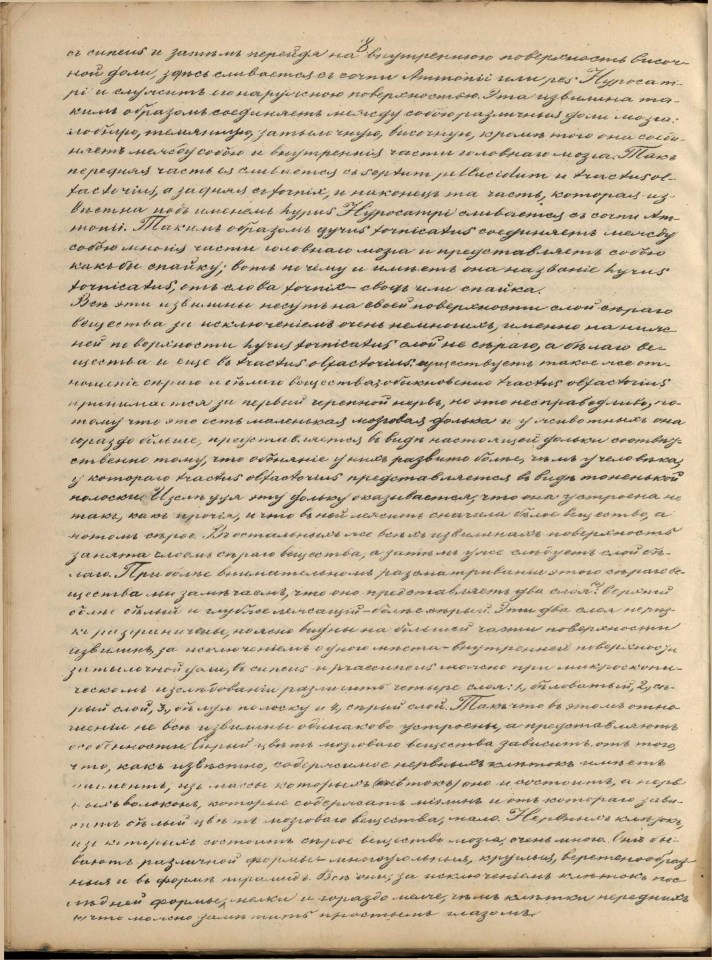 8
съ cuneus и затѣмъ перейдя на внутреннюю поверхность височ-
ной доли, здѣсь сливается съ cornu Ammonii или pes Hypocam-
pi и служитъ ея наружною поверхностью. Эта извилина та-
кимъ образомъ соединяетъ между собою различныя доли мозга:
лобную, темянную, затылочную, височную, кромѣ того она соеди-
няетъ между собою и внутреннія части головнаго мозга. Такъ
передняя часть ея сливается съ septum pellucidum и tractus ol-
factorius, а задняя съ fornix, и наконецъ та часть, которая из-
вѣстна подъ именемъ hyrus Hypocampi сливается съ cornu Am-
monii. Такимъ образомъ gyrus fornicatus соединяетъ между
собою многія части головнаго мозга и представляетъ собою
какъ бы спайку; вотъ почему и имѣетъ она названіе hyrus
fornicatus, отъ слова fornix – сводъ или спайка.
Всѣ эти извилины несутъ на своей поверхности слой сѣраго
вещества за исключеніемъ очень немногихъ, именно на ниж-
ней поверхности hyrus fornicatus слой не сѣраго, а бѣлаго ве-
щества и еще въ tractus olfactorius существуетъ такое же от-
ношеніе сѣраго и бѣлаго вещества; обыкновенно tractus olfactorius
принимается за первый черепной нервъ, но это несправедливо, по-
тому что это есть маленькая мозговая долька и у животныхъ она
гораздо больше, представляется въ видѣ настоящей дольки соотвѣт-
ственно тому, что обоняніе у нихъ развито болѣе, чѣмъ у человѣка,
у котораго tractus olfactorius представляется въ видѣ тоненькой
полоски. Изслѣдуя эту дольку оказывается, что она устроена не
такъ, какъ прочія, и что въ ней лежитъ сначала бѣлое вещество, а
потомъ сѣрое. Въ остальныхъ же всѣхъ извилинахъ поверхность
занята слоемъ сѣраго вещества, а затѣмъ уже слѣдуетъ слой бѣ-
лаго. При болѣе внимательномъ разсматриваніи этого сѣраго ве-
щества мы замѣчаемъ, что оно представляетъ два слоя: верхній
болѣе бѣлый и глубже лежащій – болѣе сѣрый. Эти два слоя рѣз-
ко разграничены, но ясно видны на большей части поверхности
извилинъ, за исключеніемъ одного мѣста – внутренней поверхности
затылочной доли, въ cuneus и praecuneus можно при микроскопи-
ческомъ изслѣдованіи различить четыре слоя: 1, бѣловатый, 2, сѣ-
рый слой, 3, бѣлую полоску и 4, сѣрый слой. Такъ что въ этомъ отно-
шеніи не всѣ извилины одинаково устроены, а представляютъ
особенности. Сѣрый цвѣтъ мозговаго вещества зависитъ отъ того,
что, какъ извѣстно, содержимое нервныхъ клѣтокъ имѣетъ
пигментъ, изъ массы которыхъ (клѣтокъ) оно и состоитъ, а нерв-
ныхъ волоконъ, которые содержатъ міэлинъ и отъ котораго зави-
ситъ бѣлый цвѣтъ мозговаго вещества, мало. Нервныхъ клѣтокъ,
изъ которыхъ состоитъ сѣрое вещество мозга, очень много. Онѣ бы-
ваютъ различной формы – многоугольныя, круглыя, веретенообраз-
ныя и въ формѣ пирамидъ. Всѣ они, за исключеніемъ клѣтокъ пос-
лѣдней формы, мелки и гораздо мельче, чѣмъ клѣтки переднихъ
что можно замѣтить простымъ глазомъ.